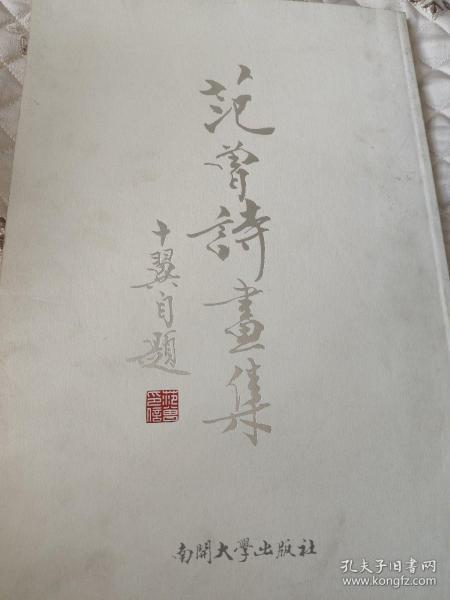 范曾詩畫集
十翼自題
范曾印信
南開大學出版社
孔夫子旧书网
www.kongfz.com